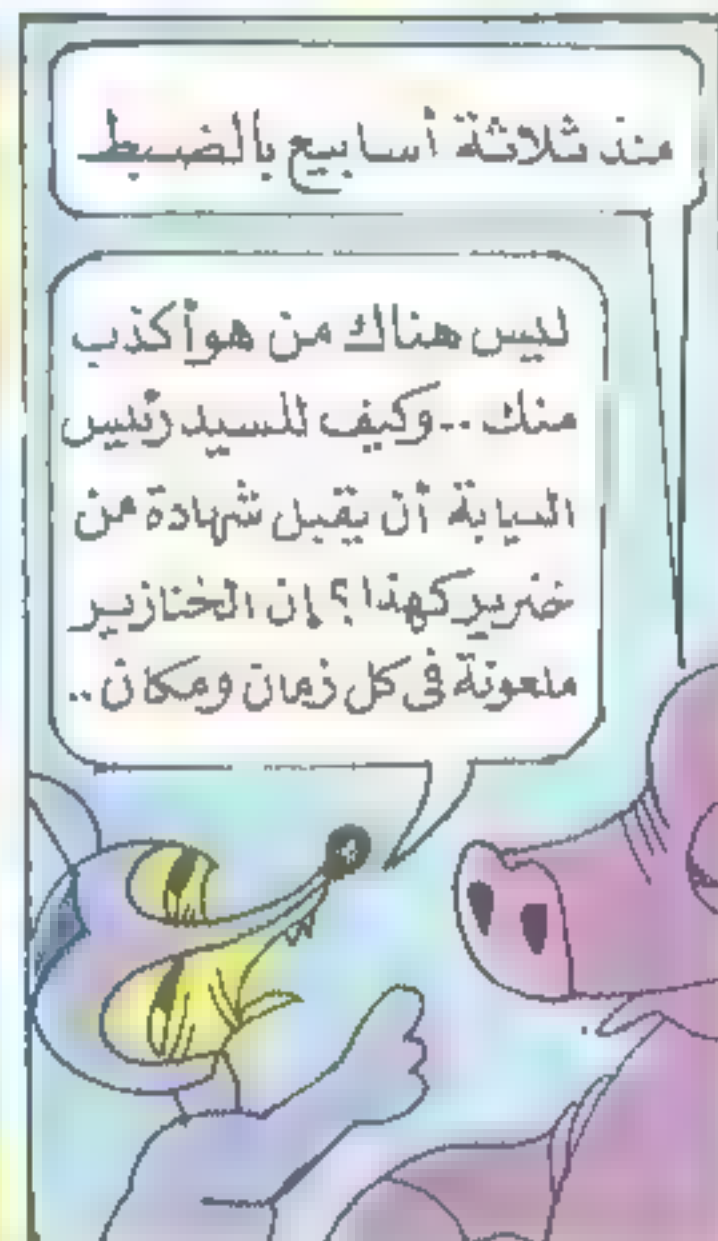 منذ ثلاثة أسابيع بالضبط
ليس هناك من هو أكذب
منك .. وكيف للسيد رئيس
النيابة أن يقبل شهادة من
خنزير كهذا ؟ إن الخنازير
ملعونة فى كل زمان ومكان ..